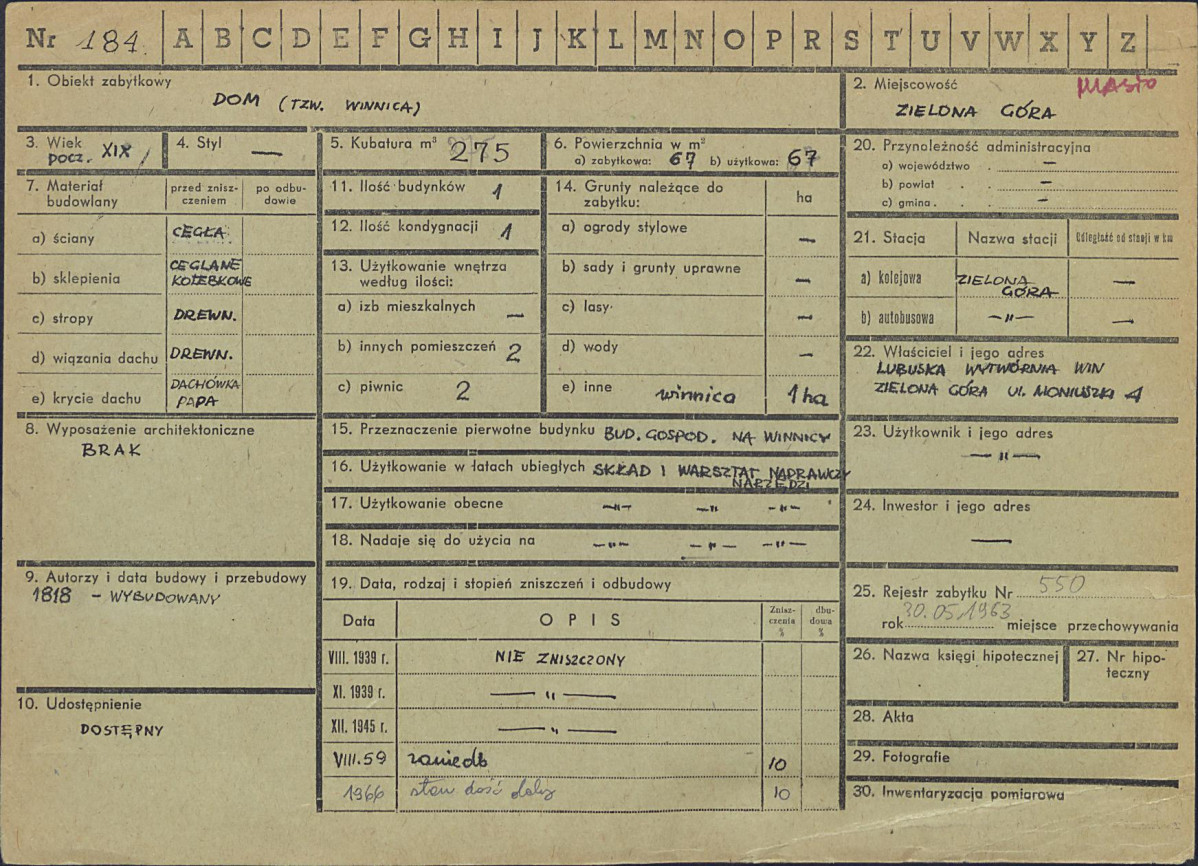 Nr 184. A B C D E F G H I J K L M N O P R S T U V W X Y Z
1. Obiekt zabytkowy
DOM (TZW. WINNICA)
2. Miejscowość
MIASTO
ZIELONA GÓRA
3. Wiek
pocz. XIX
4. Styl
—
5. Kubatura m³ 275
6. Powierzchnia w m²
a) zabytkowa: 67 b) użytkowa: 67
7. Materiał budowlany
przed zniszczeniem
po odbudowie
a) ściany CEGŁA
b) sklepienia CEGLANE KOLEBKOWE
c) stropy DREWN.
d) wiązania dachu DREWN.
e) krycie dachu DACHÓWKA PAPA
8. Wyposażenie architektoniczne
BRAK
9. Autorzy i data budowy i przebudowy
1818 – WYBUDOWANY
10. Udostępnienie
DOSTĘPNY
11. Ilość budynków 1
12. Ilość kondygnacji 1
13. Użytkowanie wnętrza
według ilości:
a) izb mieszkalnych —
b) innych pomieszczeń 2
c) piwnic 2
14. Grunty należące do
zabytku:
ha
a) ogrody stylowe —
b) sady i grunty uprawne —
c) lasy —
d) wody —
e) inne winnica 1 ha
15. Przeznaczenie pierwotne budynku BUD. GOSPOD. NA WINNICY
16. Użytkowanie w latach ubiegłych SKŁAD I WARSZTAT NAPRAWCZY
NARZĘDZI
17. Użytkowanie obecne —„— —„— —„—
18. Nadaje się do użycia na —„— —„— —„—
19. Data, rodzaj i stopień zniszczeń i odbudowy
Data
OPIS
Zniszczenia %
dbudowa %
VIII. 1939 r. NIE ZNISZCZONY
XI. 1939 r. —„—
XII. 1945 r. —„—
VIII.59 zaniedb 10
1966 stan dość dobry 10
20. Przynależność administracyjna
a) województwo —
b) powiat —
c) gmina —
21. Stacja
Nazwa stacji
Odległość od stacji w km
a) kolejowa ZIELONA GÓRA —
b) autobusowa —„— —
22. Właściciel i jego adres
LUBUSKA WYTWÓRNIA WIN
ZIELONA GÓRA UL. MONIUSZKI 4
23. Użytkownik i jego adres
—„—
24. Inwestor i jego adres
—
25. Rejestr zabytku Nr 550
rok 30.05.1963 miejsce przechowywania
26. Nazwa księgi hipotecznej
27. Nr hipoteczny
28. Akta
29. Fotografie
30. Inwentaryzacja pomiarowa